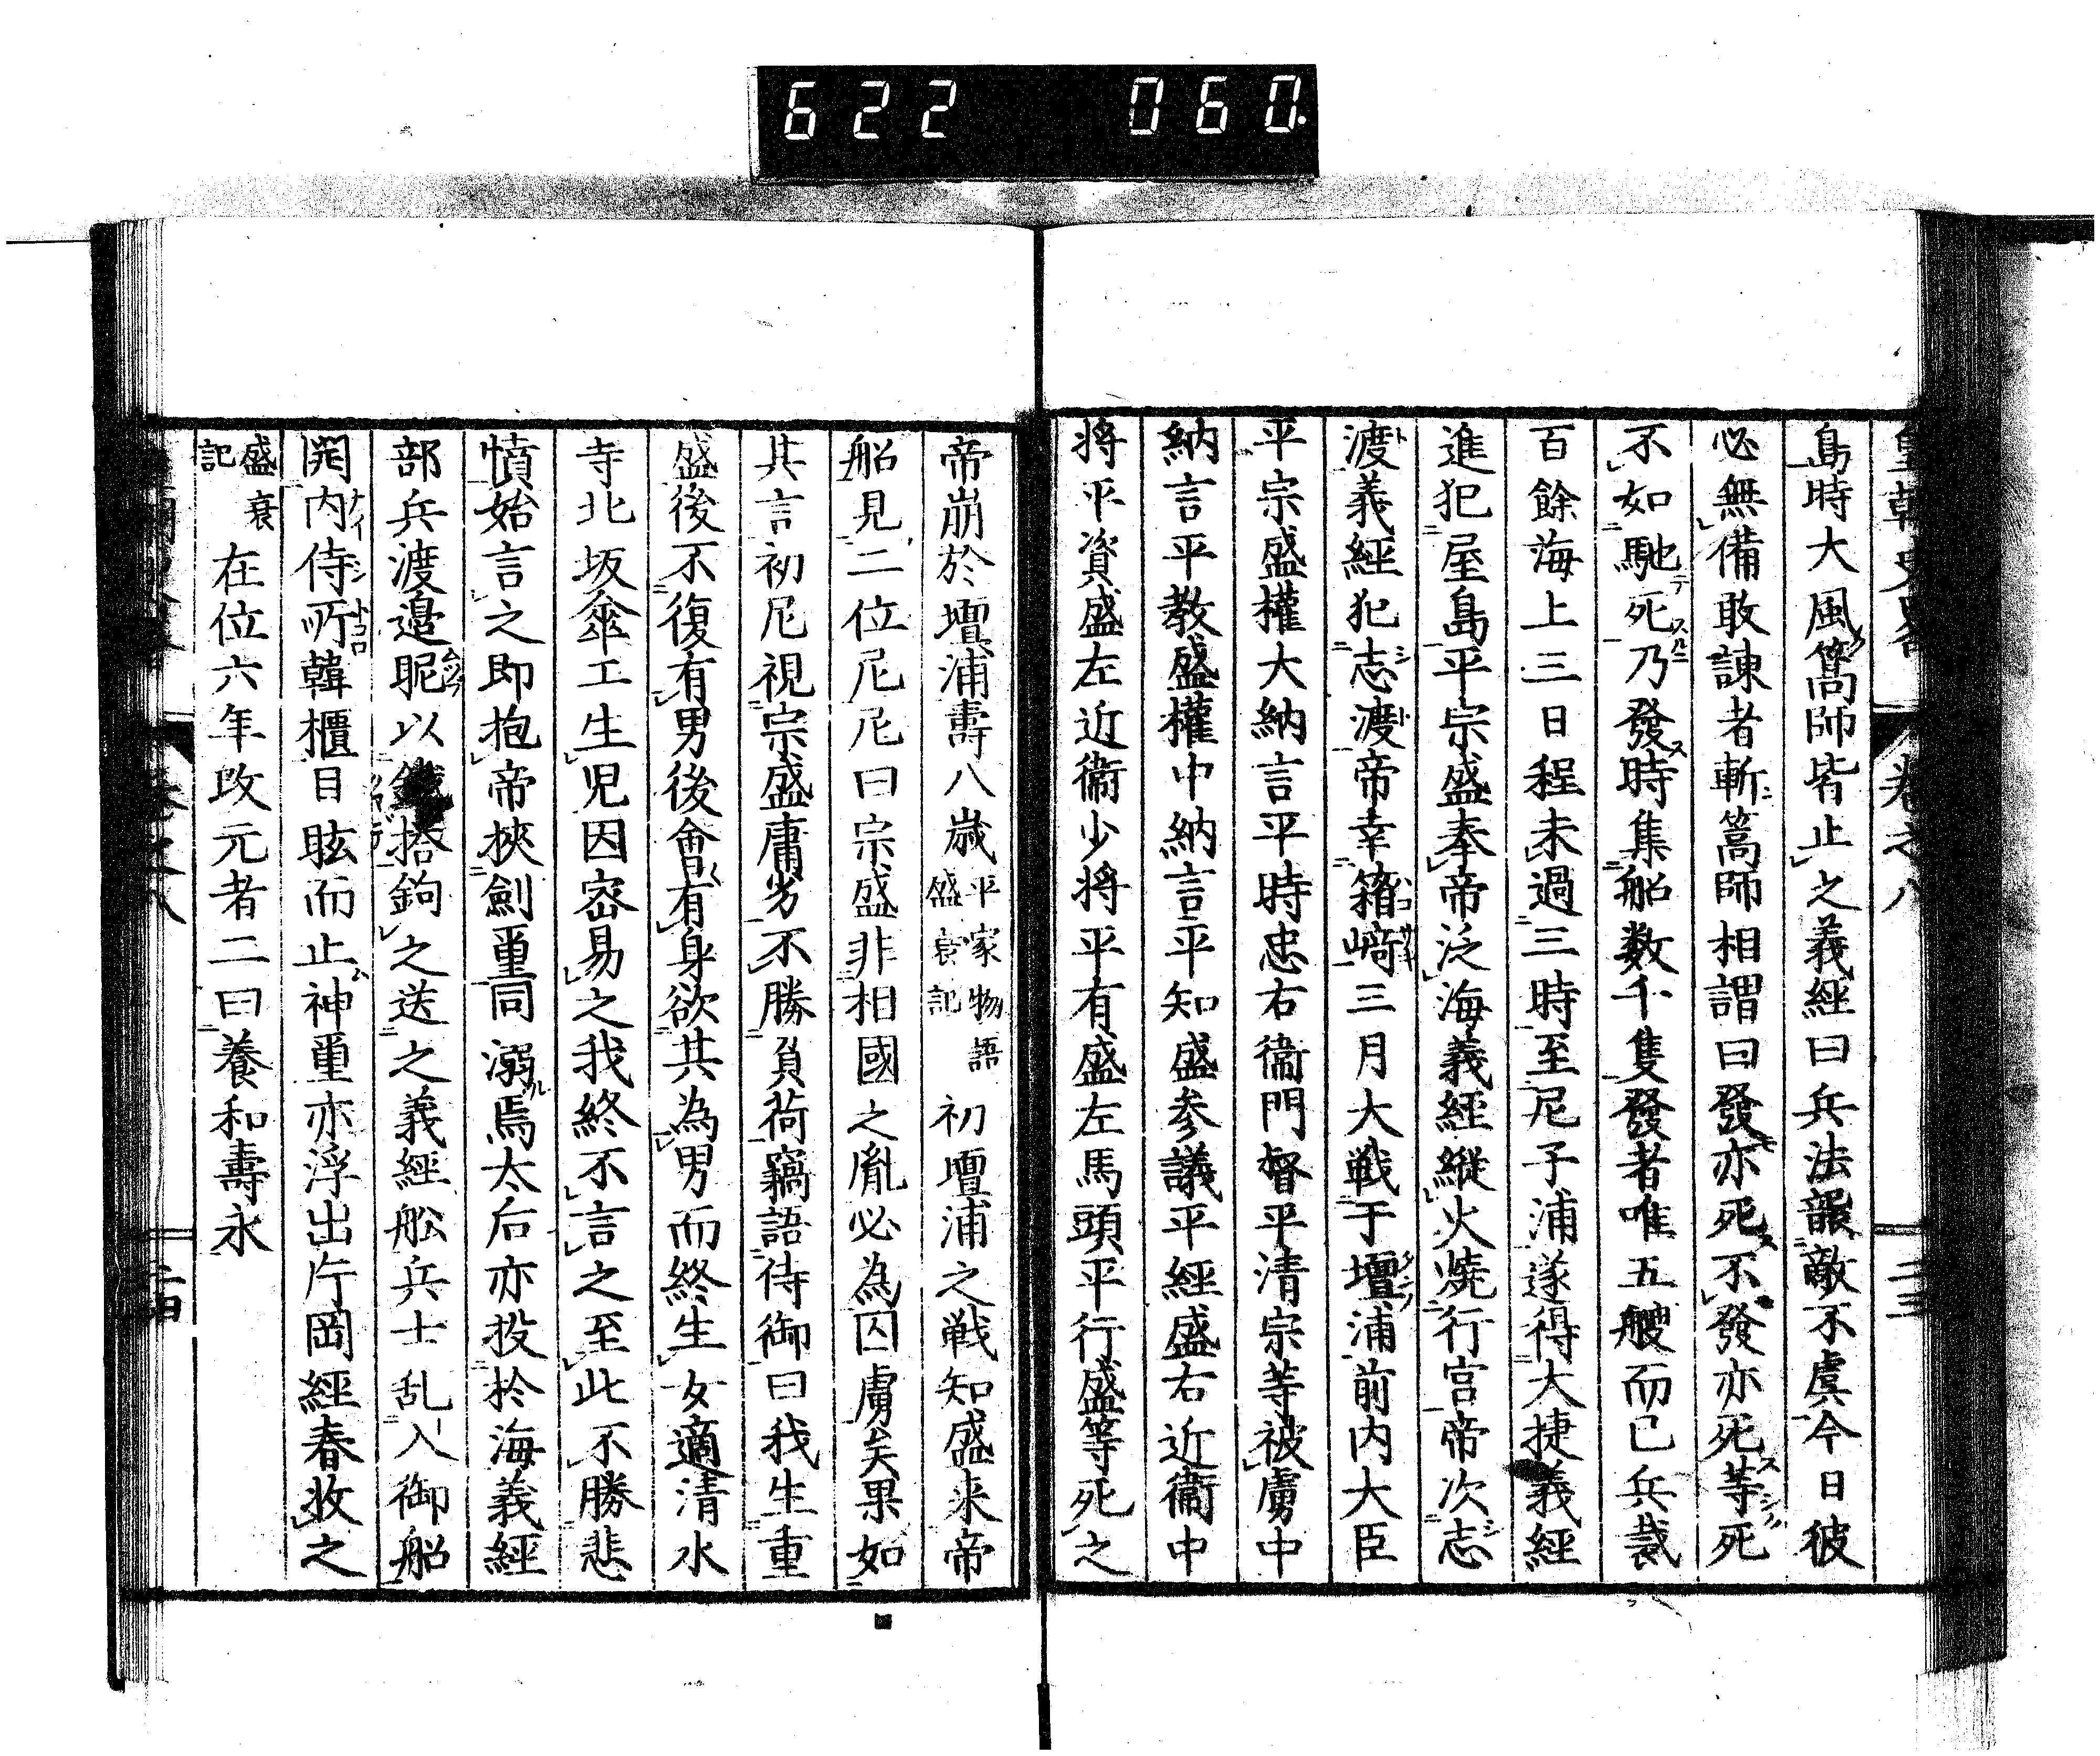 622 060.
皇朝史畧 卷之八 二三
島時大風篙師皆止之義經曰兵法襲敵不虞今日彼
必無備敢諫者斬篙師相謂曰發亦死不發亦死等死
不如馳死乃發時集船数千隻發者唯五艘而已兵裁
百餘海上三日程未過三時至尼子浦遂得大捷義經
進犯屋島平宗盛奉帝泛海義經縱火燒行宮帝次志
渡義經犯志渡帝幸箱﨑三月大戦于壇浦前内大臣
平宗盛權大納言平時忠右衞門督平清宗等被虜中
納言平教盛權中納言平知盛参議平經盛右近衞中
将平資盛左近衞少将平有盛左馬頭平行盛等死之
帝崩於壇浦壽八歳平家物語盛衰記初壇浦之戦知盛来帝
船見二位尼尼曰宗盛非相國之胤必為囚虜矣果如
其言初尼視宗盛庸劣不勝負荷竊語侍御曰我生重
盛後不復有男後會有身欲其為男而終生女適清水
寺北坂傘工生児因密易之我終不言之至此不勝悲
憤始言之即抱帝挾劍璽同溺焉太后亦投於海義經
部兵渡邉眤以鐵搭鉤之送之義經舩兵士乱入御船
開内侍所韓櫃目眩而止神璽亦浮出片岡經春收之
盛衰記 在位六年改元者二曰養和壽永